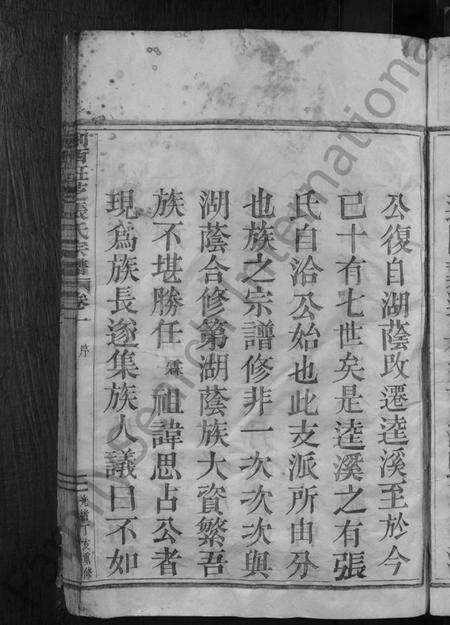 公復自湖蔭改遷逵溪至於今
已十有七世矣是逵溪之有張
氏自洽公始也此支派所由分
也族之宗譜修非一次次次與
湖蔭合修第湖蔭族大資繁吾
族不堪勝任霖祖諱思占公者
現為族長遂集族人議曰不如
張氏宗譜
卷一
序
重修
Research International